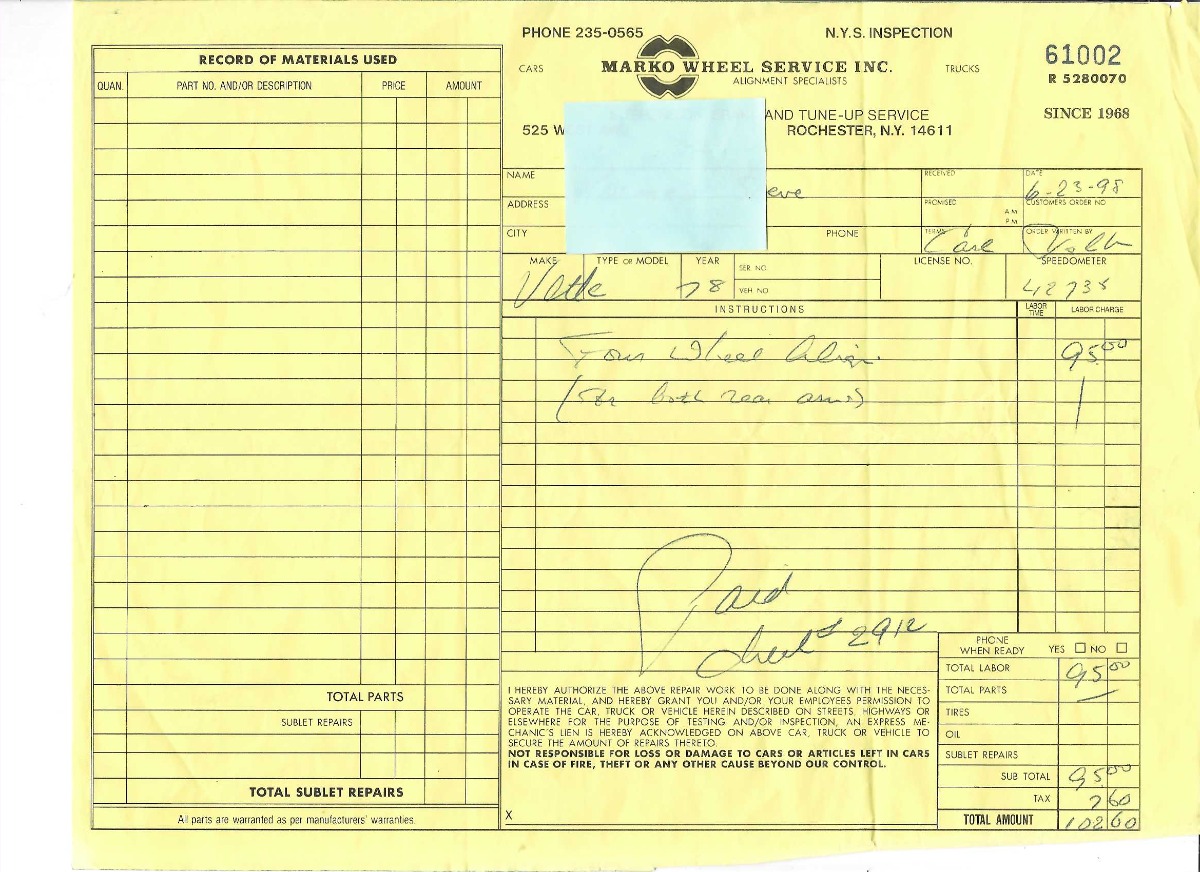 PHONE 235-0565
N.Y.S. INSPECTION
CARS
MARKO WHEEL SERVICE INC.
TRUCKS
ALIGNMENT SPECIALISTS
61002
R 5280070
AND TUNE-UP SERVICE
SINCE 1968
525 W
ROCHESTER, N.Y. 14611
RECORD OF MATERIALS USED
QUAN. PART NO. AND/OR DESCRIPTION PRICE AMOUNT
TOTAL PARTS
SUBLET REPAIRS
TOTAL SUBLET REPAIRS
All parts are warranted as per manufacturers' warranties.
NAME eve
RECEIVED
DATE 6-23-98
ADDRESS
PROMISED A.M. P.M.
CUSTOMERS ORDER NO
CITY
PHONE
TERMS
ORDER WRITTEN BY
MAKE Vette
TYPE OR MODEL
YEAR 78
SER. NO.
VEH. NO
LICENSE NO.
SPEEDOMETER 42738
INSTRUCTIONS
LABOR TIME
LABOR CHARGE
Four Wheel Align 95.00
both rear arms)
Paid
Check 2912
PHONE WHEN READY YES NO
TOTAL LABOR 95.00
TOTAL PARTS
TIRES
OIL
SUBLET REPAIRS
SUB TOTAL 95.00
TAX 7 60
TOTAL AMOUNT 102 60
I HEREBY AUTHORIZE THE ABOVE REPAIR WORK TO BE DONE ALONG WITH THE NECES-
SARY MATERIAL, AND HEREBY GRANT YOU AND/OR YOUR EMPLOYEES PERMISSION TO
OPERATE THE CAR, TRUCK OR VEHICLE HEREIN DESCRIBED ON STREETS, HIGHWAYS OR
ELSEWHERE FOR THE PURPOSE OF TESTING AND/OR INSPECTION, AN EXPRESS ME-
CHANIC'S LIEN IS HEREBY ACKNOWLEDGED ON ABOVE CAR, TRUCK OR VEHICLE TO
SECURE THE AMOUNT OF REPAIRS THERETO.
NOT RESPONSIBLE FOR LOSS OR DAMAGE TO CARS OR ARTICLES LEFT IN CARS
IN CASE OF FIRE, THEFT OR ANY OTHER CAUSE BEYOND OUR CONTROL.
X